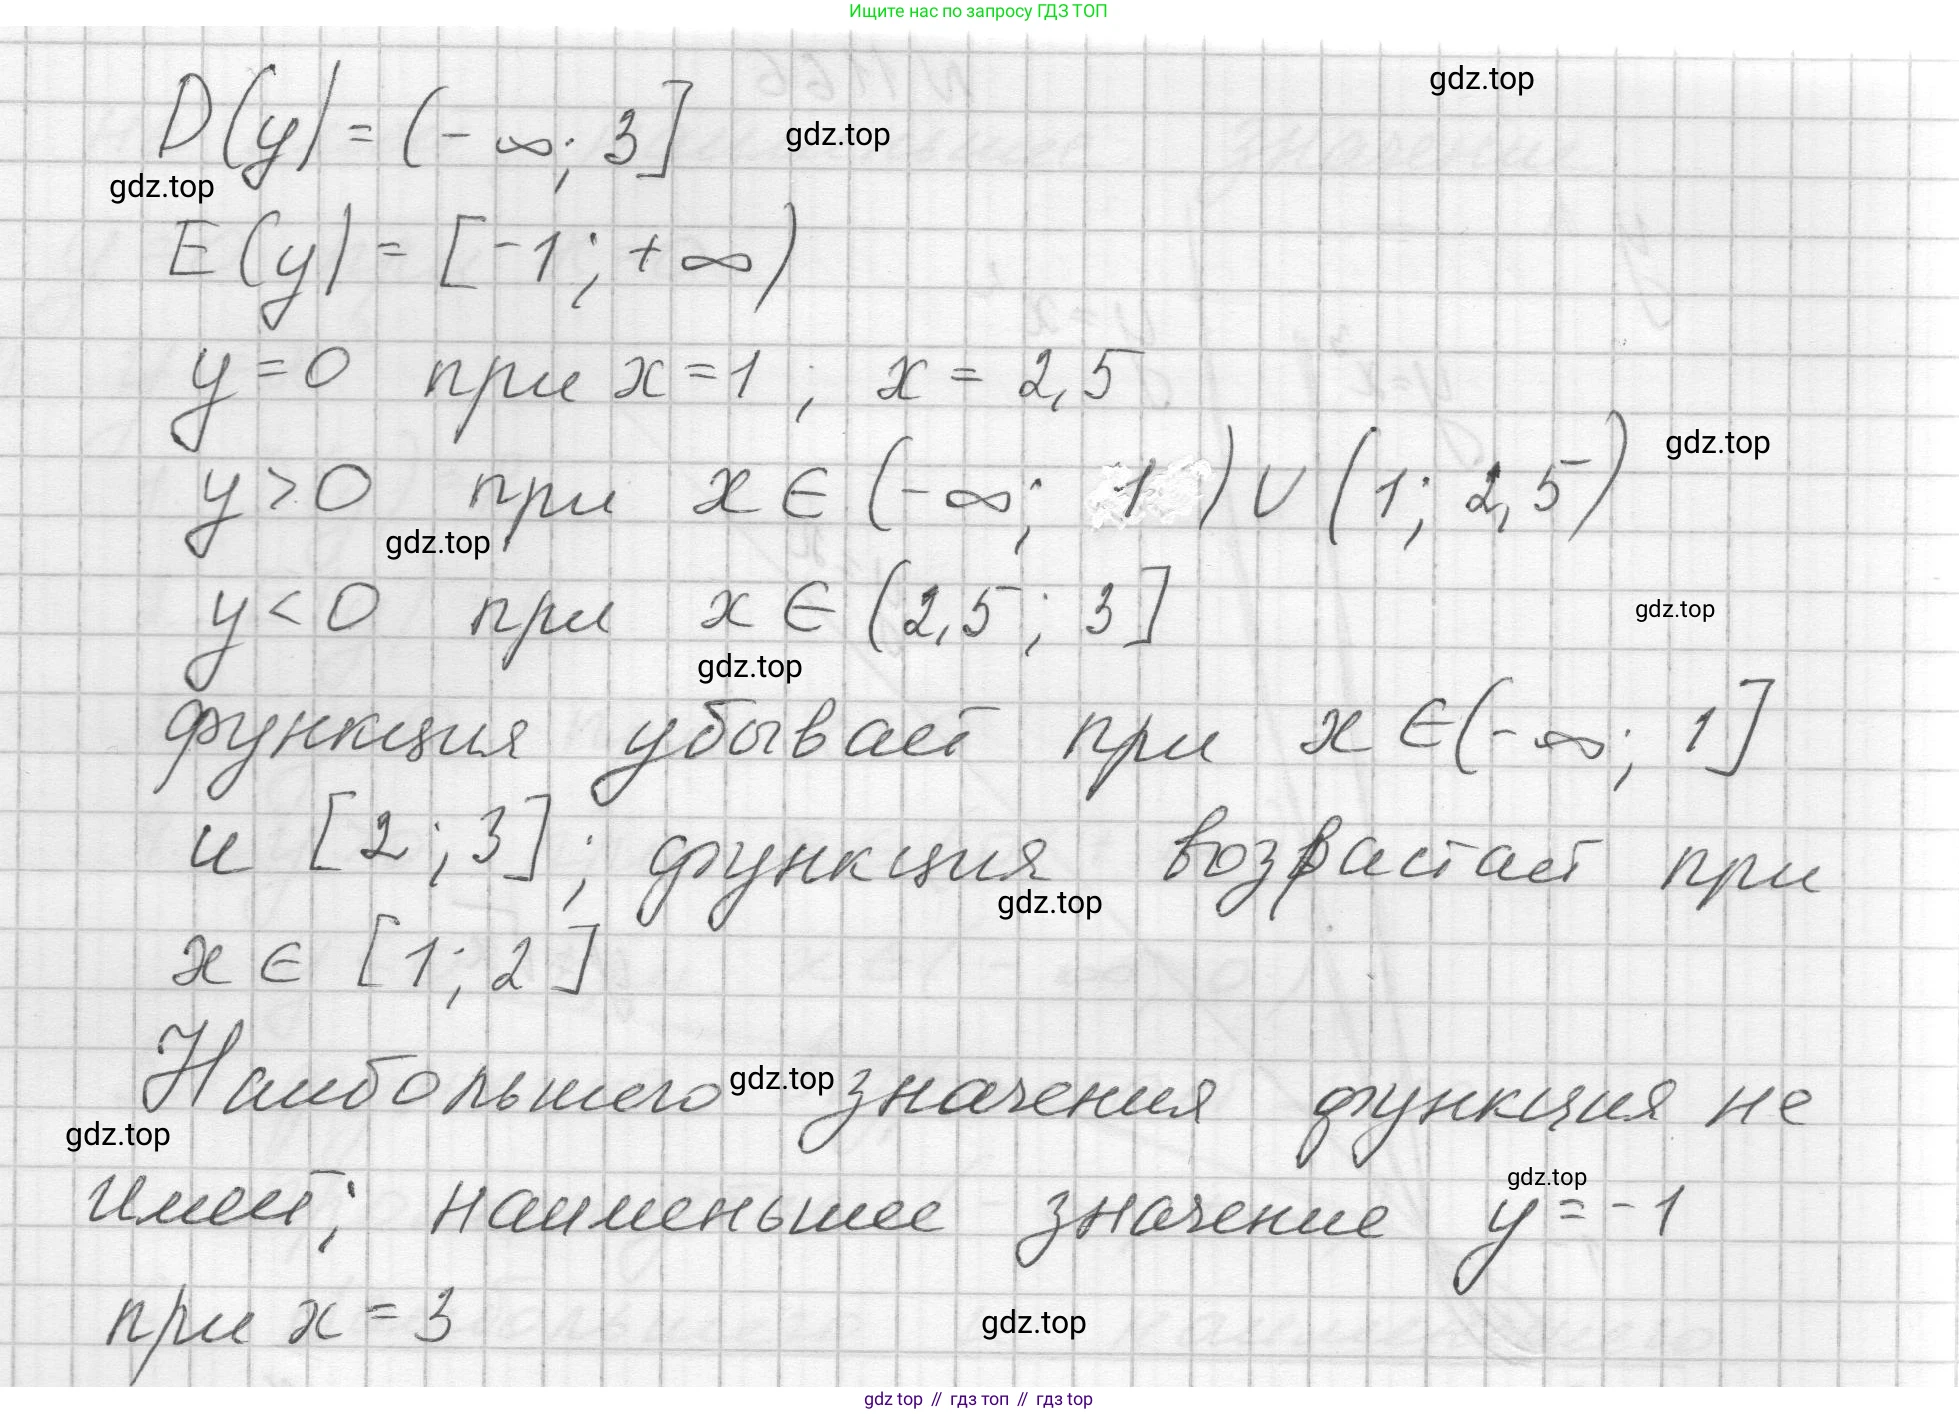 Ищите нас по запросу ГДЗ ТОП
gdz.top
D(y) = (-∞; 3]
gdz.top
gdz.top
E(y) = [-1; +∞)
y=0 при x=1; x=2,5
gdz.top
y>0 при x∈(-∞; 1)∪(1; 2,5)
gdz.top
y<0 при x∈(2,5; 3]
gdz.top
gdz.top
функция убывает при x∈(-∞; 1]
и [2; 3]; функция возрастает при
gdz.top
x∈ [1; 2]
Наибольшего значения функция не
gdz.top
gdz.top
имеет; наименьшее значение y=-1
gdz.top
при x=3
gdz.top
gdz top // гдз топ // гдз top